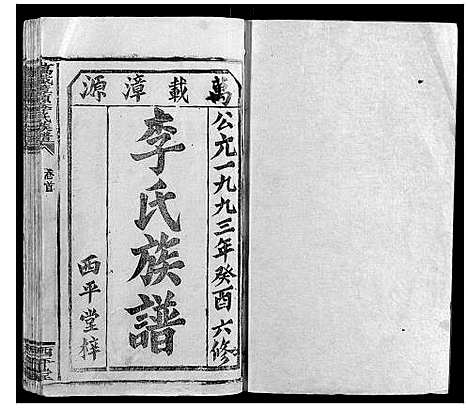 萬載漳源
公元一九九三年癸酉六修
李氏族譜
西平堂梓
卷首
西平堂